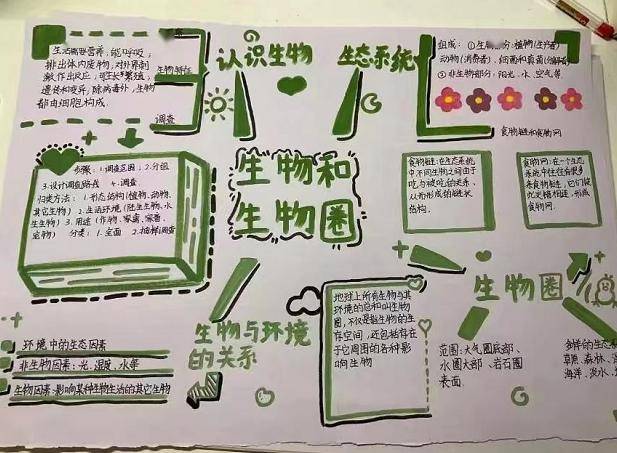 生活需要营养，能呼吸；
排出体内废物，对外界刺
激作出反应；可生长繁殖；
遗传和变异，除病毒外，生物
都由细胞构成。
生物特征
调查
认识生物
生态系统
组成：①生物部分：植物(生产者)
动物(消费者)，细菌和真菌(分解者)
②非生物部分：阳光、水、空气等
食物链和食物网
步骤：1.调查范围；2.分组
3.设计调查路线 4.调查
归类方法：1.形态结构(植物、动物、
其它生物) 2.生活环境(陆生生物、水
生生物) 3.用途(作物、家禽、家畜、
宠物) 分类：1.全面 2.抽样调查
生物和
生物圈
食物链：在生态系统
中不同生物之间由于
吃与被吃的关系
从而形成的链状
结构。
食物网：在一个生态
系统中往往有很多
条食物链，它们彼
此交错相连，形成
食物网。
生物与环境
的关系
环境中的生态因素
非生物因素：光、湿度、水等
生物因素：影响某种生物生活的其它生物
地球上所有生物与其
环境的总和叫生物
圈，不仅是指生物的生
存空间，还包括存在
于它周围的各种影
响生物
生物圈
范围：大气圈底部、
水圈大部、岩石圈
表面
多样的生态系
草原、森林、
海洋、淡水、